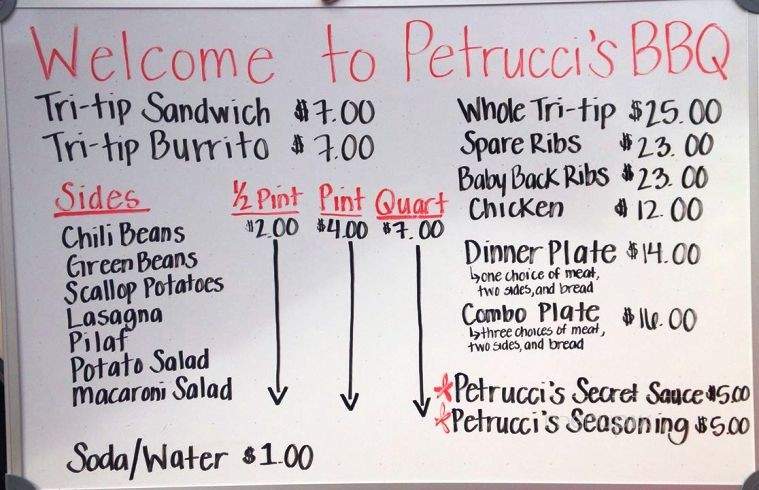 Welcome to Petrucci's BBQ
Tri-tip Sandwich $7.00
Tri-tip Burrito $7.00
Sides ½ Pint Pint Quart
$2.00 $4.00 $7.00
Chili Beans
Green Beans
Scallop Potatoes
Lasagna
Pilaf
Potato Salad
Macaroni Salad
Soda/Water $1.00
Whole Tri-tip $25.00
Spare Ribs $23.00
Baby Back Ribs $23.00
Chicken $12.00
Dinner Plate $14.00
↳one choice of meat,
two sides, and bread
Combo Plate $16.00
↳three choices of meat,
two sides, and bread
*Petrucci's Secret Sauce $5.00
*Petrucci's Seasoning $5.00